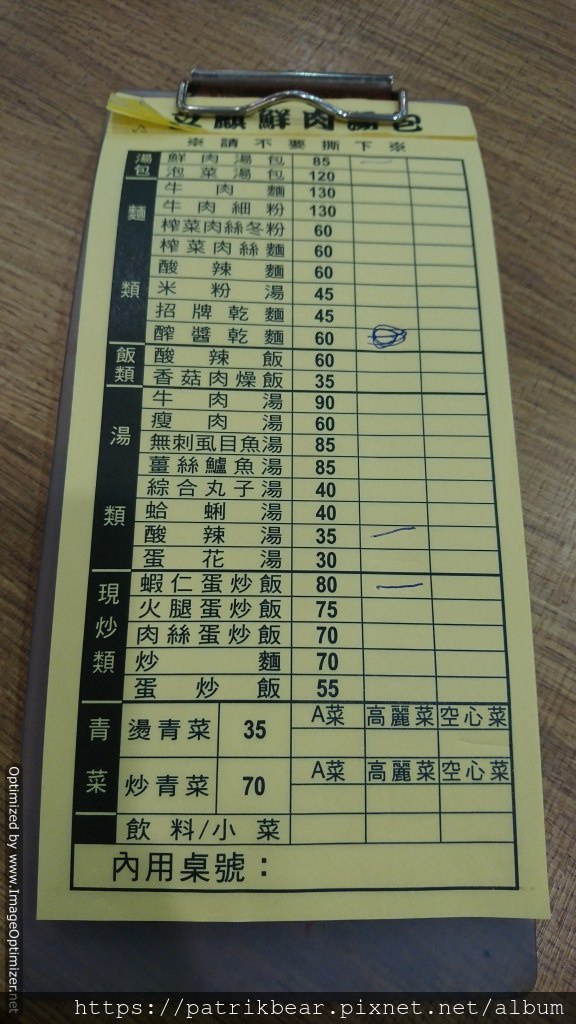 鮮肉湯包
※請不要撕下※
湯包 鮮肉湯包 85
泡菜湯包 120
麵類 牛肉麵 130
牛肉細粉 130
榨菜肉絲冬粉 60
榨菜肉絲麵 60
酸辣麵 60
米粉湯 45
招牌乾麵 45
醡醬乾麵 60
飯類 酸辣飯 60
香菇肉燥飯 35
湯類 牛肉湯 90
瘦肉湯 60
無刺虱目魚湯 85
薑絲鱸魚湯 85
綜合丸子湯 40
蛤蜊湯 40
酸辣湯 35
蛋花湯 30
現炒類 蝦仁蛋炒飯 80
火腿蛋炒飯 75
肉絲蛋炒飯 70
炒麵 70
蛋炒飯 55
青菜 燙青菜 35 A菜 高麗菜 空心菜
炒青菜 70 A菜 高麗菜 空心菜
飲料/小菜
內用桌號：
Optimized by www.ImageOptimizer.net
https://patrikbear.pixnet.net/album